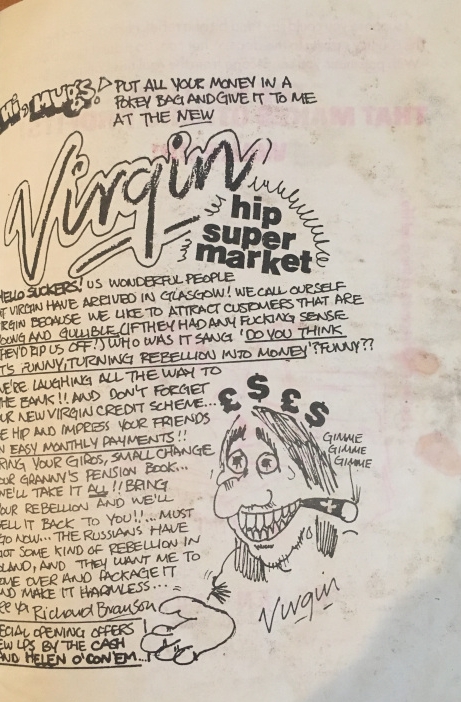 Hi, MUGS!
PUT ALL YOUR MONEY IN A
POKEY BAG AND GIVE IT TO ME
AT THE NEW
Virgin
hip
super
market
HELLO SUCKERS! US WONDERFUL PEOPLE
AT VIRGIN HAVE ARRIVED IN GLASGOW! WE CALL OURSELF
VIRGIN BECAUSE WE LIKE TO ATTRACT CUSTOMERS THAT ARE
YOUNG AND GULLIBLE (IF THEY HAD ANY FUCKING SENSE
THEY'D RIP US OFF!) WHO WAS IT SANG 'DO YOU THINK
IT'S FUNNY, TURNING REBELLION INTO MONEY'? FUNNY??
WE'RE LAUGHING ALL THE WAY TO
THE BANK!! AND DON'T FORGET
OUR NEW VIRGIN CREDIT SCHEME...
BE HIP AND IMPRESS YOUR FRIENDS
ON EASY MONTHLY PAYMENTS!!
BRING YOUR GIROS, SMALL CHANGE
YOUR GRANNY'S PENSION BOOK...
WE'LL TAKE IT ALL!! BRING
YOUR REBELLION AND WE'LL
SELL IT BACK TO YOU!!... MUST
GO NOW... THE RUSSIANS HAVE
GOT SOME KIND OF REBELLION IN
POLAND, AND THEY WANT ME TO
COME OVER AND PACKAGE IT
AND MAKE IT HARMLESS...
See ya Richard Branson
SPECIAL OPENING OFFERS
NEW LPS BY THE CASH
AND HELEN O'CON'EM...!
£ $ £ $
GIMME
GIMME
GIMME
Virgin
THAT MAKES